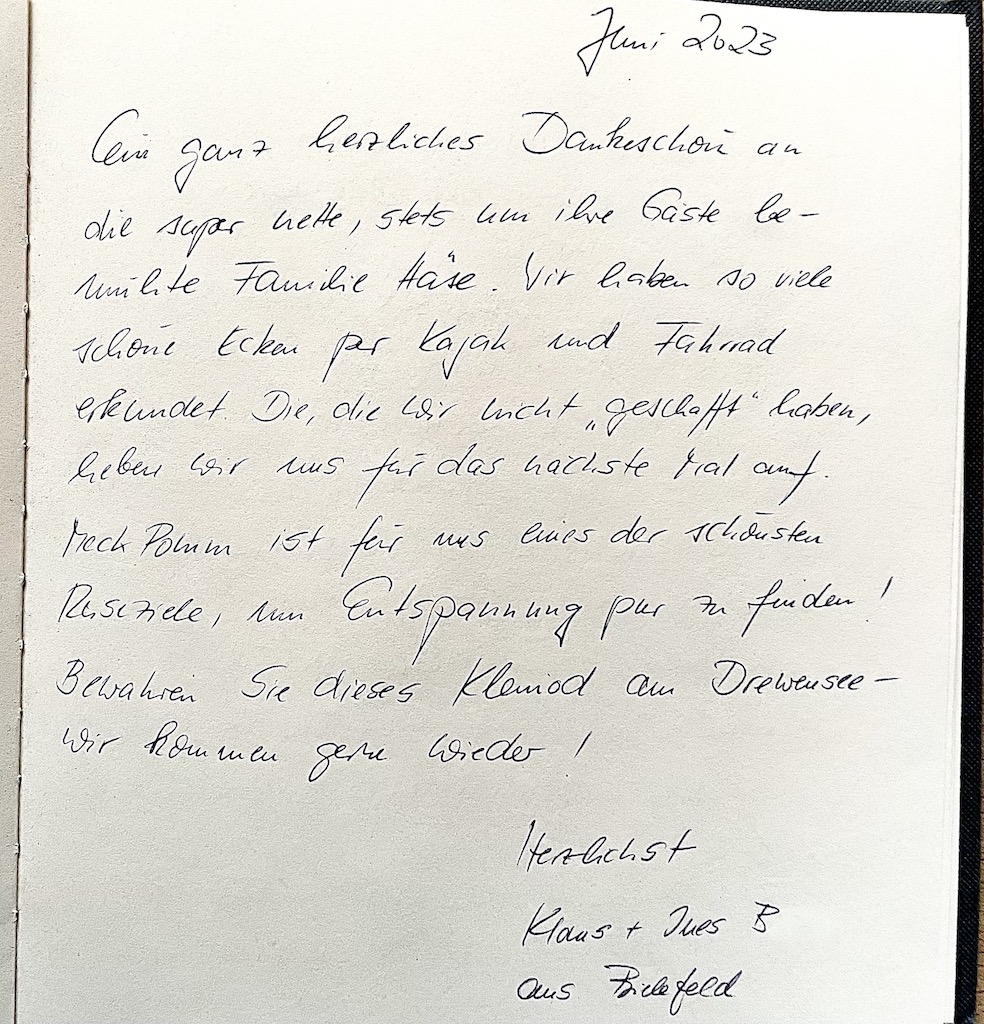 Juni 2023
Ein ganz herzliches Dankeschön an
die super nette, stets um ihre Gäste be-
mühte Familie Häse. Wir haben so viele
schöne Ecken per Kajak und Fahrrad
erkundet. Die, die wir nicht „geschafft“ haben,
heben wir uns für das nächste Mal auf.
MeckPomm ist für uns eines der schönsten
Reiseziele, um Entspannung pur zu finden!
Bewahren Sie dieses Kleinod am Drewensee-
wir kommen gerne wieder!
Herzlichst
Klaus + Ines B
aus Bielefeld